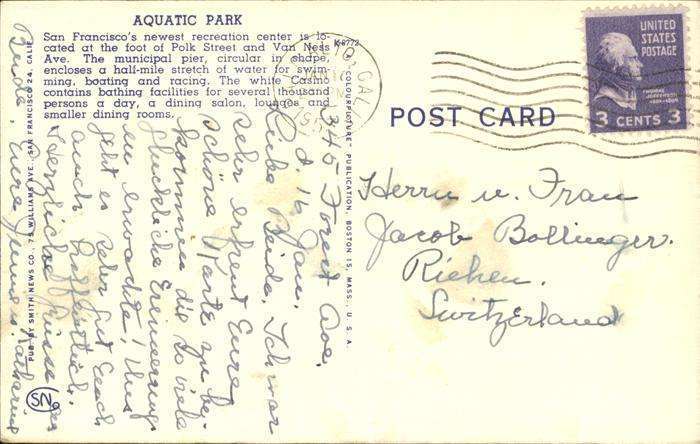 AQUATIC PARK
San Francisco's newest recreation center is lo-
cated at the foot of Polk Street and Van Ness
Ave. The municipal pier, circular in shape,
encloses a half-mile stretch of water for swim-
ming, boating and racing. The white Casino
contains bathing facilities for several thousand
persons a day, a dining salon, lounges and
smaller dining rooms.
K-8772
UNITED
STATES
POSTAGE
THOMAS
JEFFERSON
1801-1809
3 CENTS 3
CAL
POST CARD
A "COLOURPICTURE" PUBLICATION, BOSTON 15, MASS., U. S. A.
Herrn u. Frau
Jacob Bollinger.
Riehen.
Switzerland
345 Forest Ave.
d. 16 Jan.
Liebe Beide. Ich war
sehr erfreut Eure
schöne Karte zu be-
kommen die so viele
glückliche Erinnerung
en erwachte! Uns
geht es sehr gut Euch
auch hoffentlich.
Herzliche Grüsse
Beide, Eure
PUB. BY SMITH NEWS CO., 75 WILLIAMS AVE., SAN FRANCISCO 24, CALIF.
SN